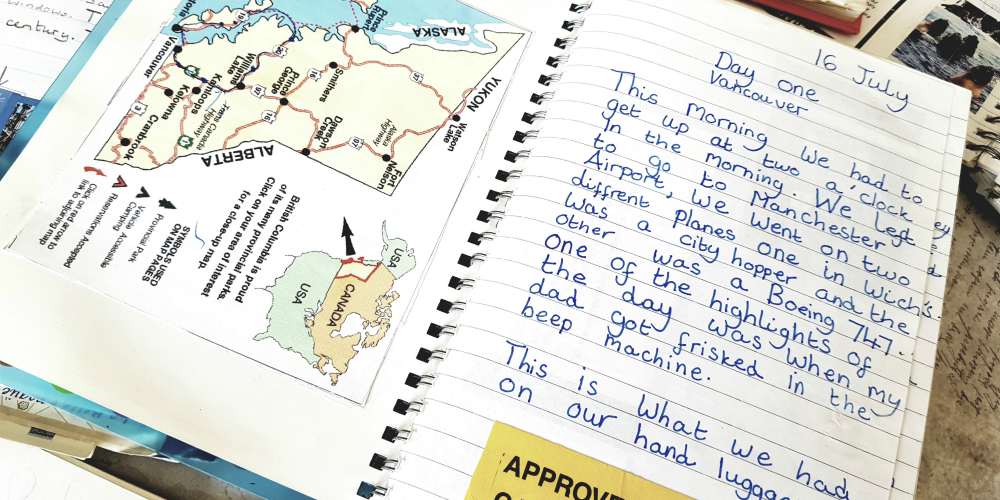 16 July
Day one
Vancouver
This morning we had to
get up at two a'clock
In the morning. We left
to go to Manchester
Airport, We went on two
diffrent planes one in wich
was a city hopper and the
other was a Boeing 747.
One of the highlights of
the day was when my
dad got frisked in the
beep machine.
This is what we had
on our hand
APPROVE
ALASKA
YUKON
Prince
Rupert
Watson
Lake
Vancouver
Williams
Lake
Prince
George
Smithers
16
97
Alaska
Highway
Kamloops
Kelowna
Cranbrook
3
Trans Canada
Highway
16
Dawson
Creek
97
Fort
Nelson
ALBERTA
Click on red arrow to
link to adjoining map
Reservations Accepted
Vehicle Accessible
Camping
Provincial Park
SYMBOLS USED
ON MAP PAGES
British Columbia is proud
of its many provincial parks.
Click on your area of interest
for a close-up map.
USA
CANADA
USA
century.